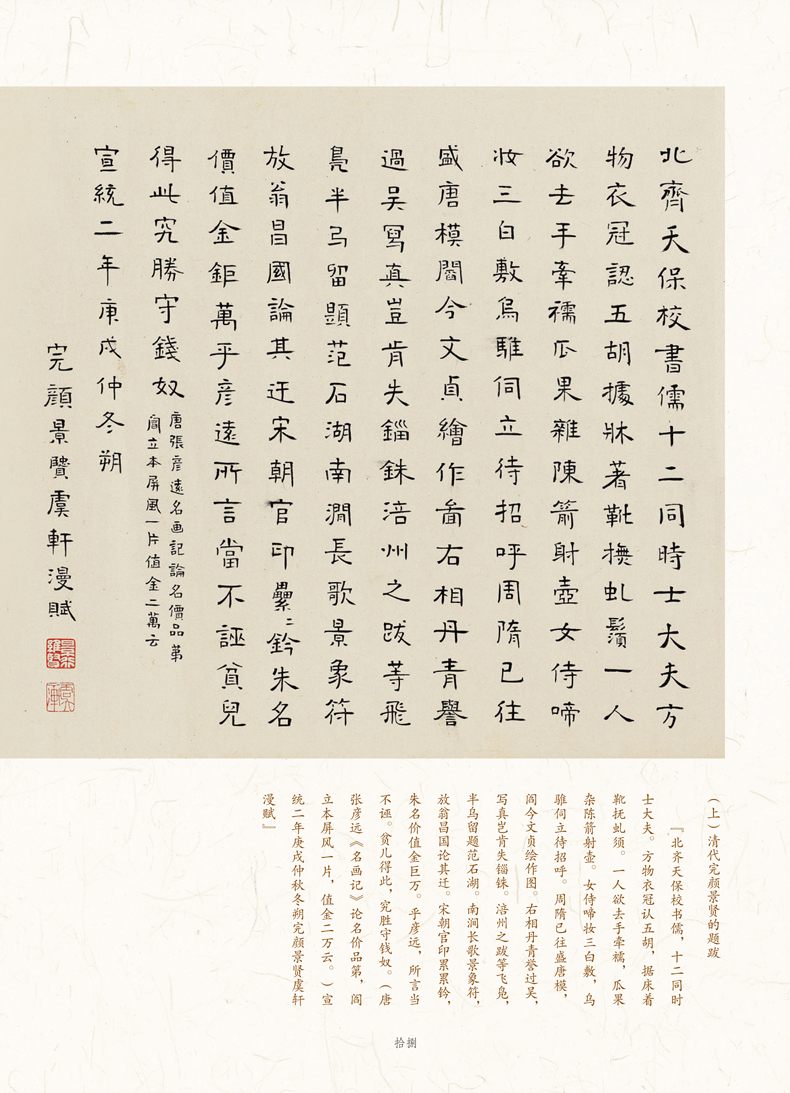 北齊天保校書儒十二同時士大夫方
物衣冠認五胡據牀著靴撫虬鬚一人
欲去手牽襦瓜果雜陳箭射壺女侍啼
妝三白敷烏騅伺立待招呼周隋已往
盛唐模閻今文貞繪作啚右相丹青譽
過吳寫真豈肯失錙銖涪州之跋等飛
鳧半烏留題范石湖南澗長歌景象符
放翁昌國論其迂宋朝官印纍〻鈐朱名
價值金鉅萬乎彦遠所言當不誣貧兒
得此究勝守錢奴
唐張彦遠名画記論名價品第
閻立本屏風一片值金二萬云
宣統二年庚戌仲冬朔
完顔景贒虞軒漫賦
(上)清代完颜景贤的题跋
『北齐天保校书儒,十二同时
士大夫。方物衣冠认五胡,据床着
靴抚虬须。一人欲去手牵襦,瓜果
杂陈箭射壶。女侍啼妆三白敷,乌
骓伺立待招呼。周隋已往盛唐模,
阎今文贞绘作图。右相丹青誉过吴,
写真岂肯失锱铢。涪州之跋等飞凫,
半乌留题范石湖。南涧长歌景象符,
放翁昌国论其迂。宋朝官印累累钤,
朱名价值金巨万。乎彦远,所言当
不诬。贫儿得此,究胜守钱奴。(唐
张彦远《名画记》论名价品第,阎
立本屏风一片,值金二万云。)宣
统二年庚戌仲秋冬朔完颜景贤虞轩
漫赋』
拾捌